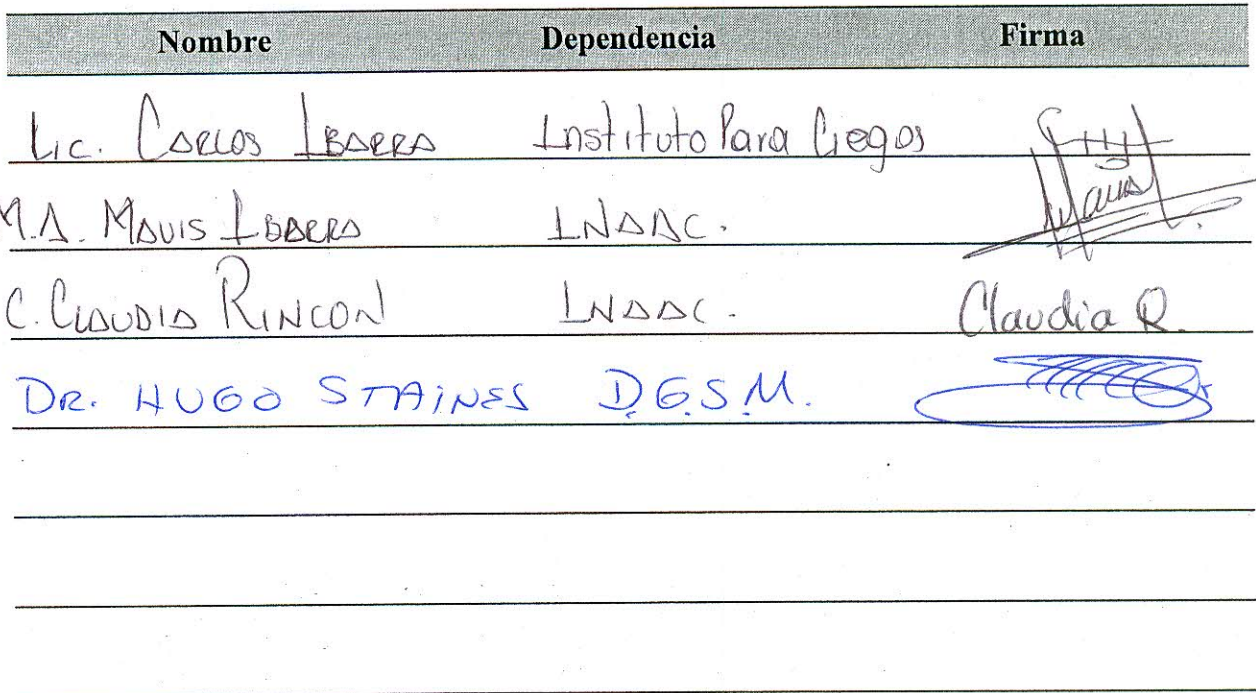 Nombre Dependencia Firma
Lic. Carlos Ibarra Instituto Para Ciegos
M.A. Mavis Ibarra INAAC.
C. Claudia Rincon INAAC. Claudia R.
DR. HUGO STAINES D.G.S.M.